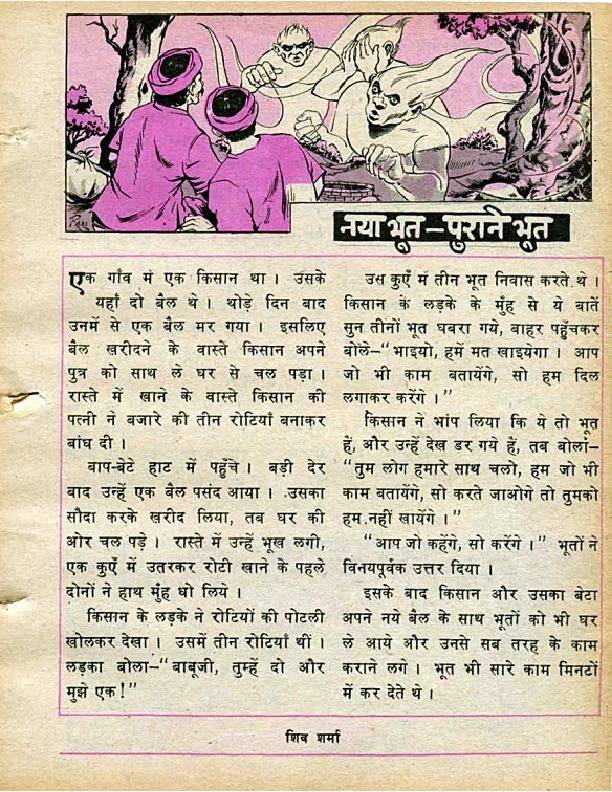 नया भूत – पुराने भूत
एक गाँव में एक किसान था। उसके
यहाँ दो बैल थे। थोड़े दिन बाद
उनमें से एक बैल मर गया। इसलिए
बैल खरीदने के वास्ते किसान अपने
पुत्र को साथ ले घर से चल पड़ा।
रास्ते में खाने के वास्ते किसान की
पत्नी ने बजारे की तीन रोटियाँ बनाकर
बांध दी।
बाप-बेटे हाट में पहुँचे। बड़ी देर
बाद उन्हें एक बैल पसंद आया। उसका
सौदा करके खरीद लिया, तब घर की
ओर चल पड़े। रास्ते में उन्हें भूख लगी,
एक कुएँ में उतरकर रोटी खाने के पहले
दोनों ने हाथ मुँह धो लिये।
किसान के लड़के ने रोटियों की पोटली
खोलकर देखा। उसमें तीन रोटियाँ थीं।
लड़का बोला–"बाबूजी, तुम्हें दो और
मुझे एक!"
उस कुएँ में तीन भूत निवास करते थे।
किसान के लड़के के मुँह से ये बातें
सुन तीनों भूत घबरा गये, बाहर पहुँचकर
बोले–"भाइयो, हमें मत खाइयेगा। आप
जो भी काम बतायेंगे, सो हम दिल
लगाकर करेंगे।"
किसान ने भांप लिया कि ये तो भूत
हैं, और उन्हें देख डर गये हैं, तब बोला–
"तुम लोग हमारे साथ चलो, हम जो भी
काम बतायेंगे, सो करते जाओगे तो तुमको
हम नहीं खायेंगे।"
"आप जो कहेंगे, सो करेंगे।" भूतों ने
विनयपूर्वक उत्तर दिया।
इसके बाद किसान और उसका बेटा
अपने नये बैल के साथ भूतों को भी घर
ले आये और उनसे सब तरह के काम
कराने लगे। भूत भी सारे काम मिनटों
में कर देते थे।
शिव शर्मा